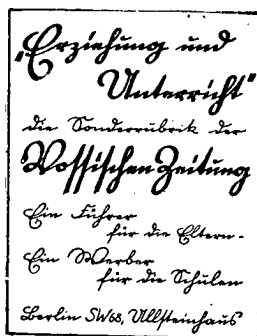 „Erziehung und
Unterricht"
die Sonderrubrik der
Vossischen Zeitung
Ein Führer
für die Eltern.
Ein Werber
für die Schulen
Berlin SW68, Ullsteinhaus